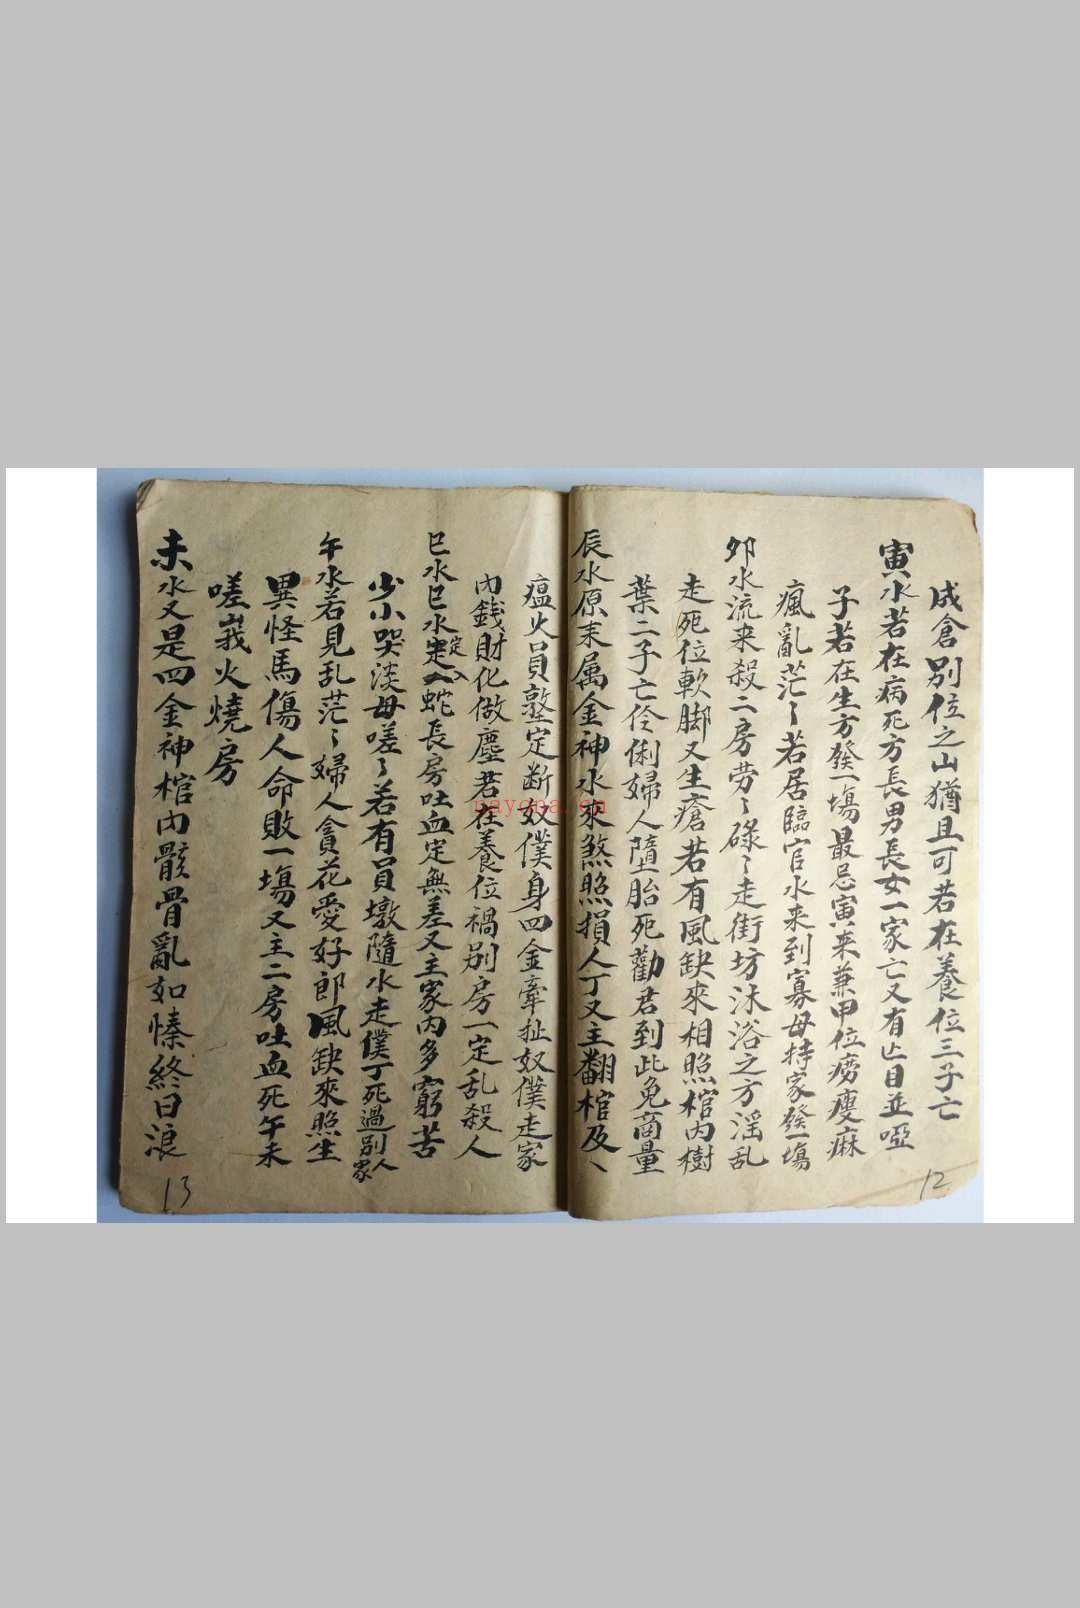 成倉別位之山猶且可若在養位三子亡
寅水若在病死方長男長女一家亡又有亾目並啞
子若在生方發一塲最忌寅来兼甲位痨瘦麻
瘋亂茫〻若居臨官水来到寡母持家發一塲
夘水流来殺二房劳〻碌〻走街坊沐浴之方淫乱
走死位軟脚又生瘡若有風缺來相照棺内樹
葉二子亡伶俐婦人墮胎死勸君到此免商量
辰水原来属金神水來煞照損人丁又主翻棺及丶
瘟火員墪定断奴僕身四金牽扯奴僕走家
内銭財化做塵若在養位禍别房一定乱殺人
巳水巳水定入蛇長房吐血定無差又主家内多窮苦
少小哭淡母嗟〻若有員墩隨水走僕丁死過别人家
午水若見乱茫〻婦人貪花愛好郎風缺來照生
異怪馬傷人命敗一塲又主二房吐血死午未
嗟峩火燒房
未水又是四金神棺内骸骨亂如愫終日浪
12
13
nayona.cn